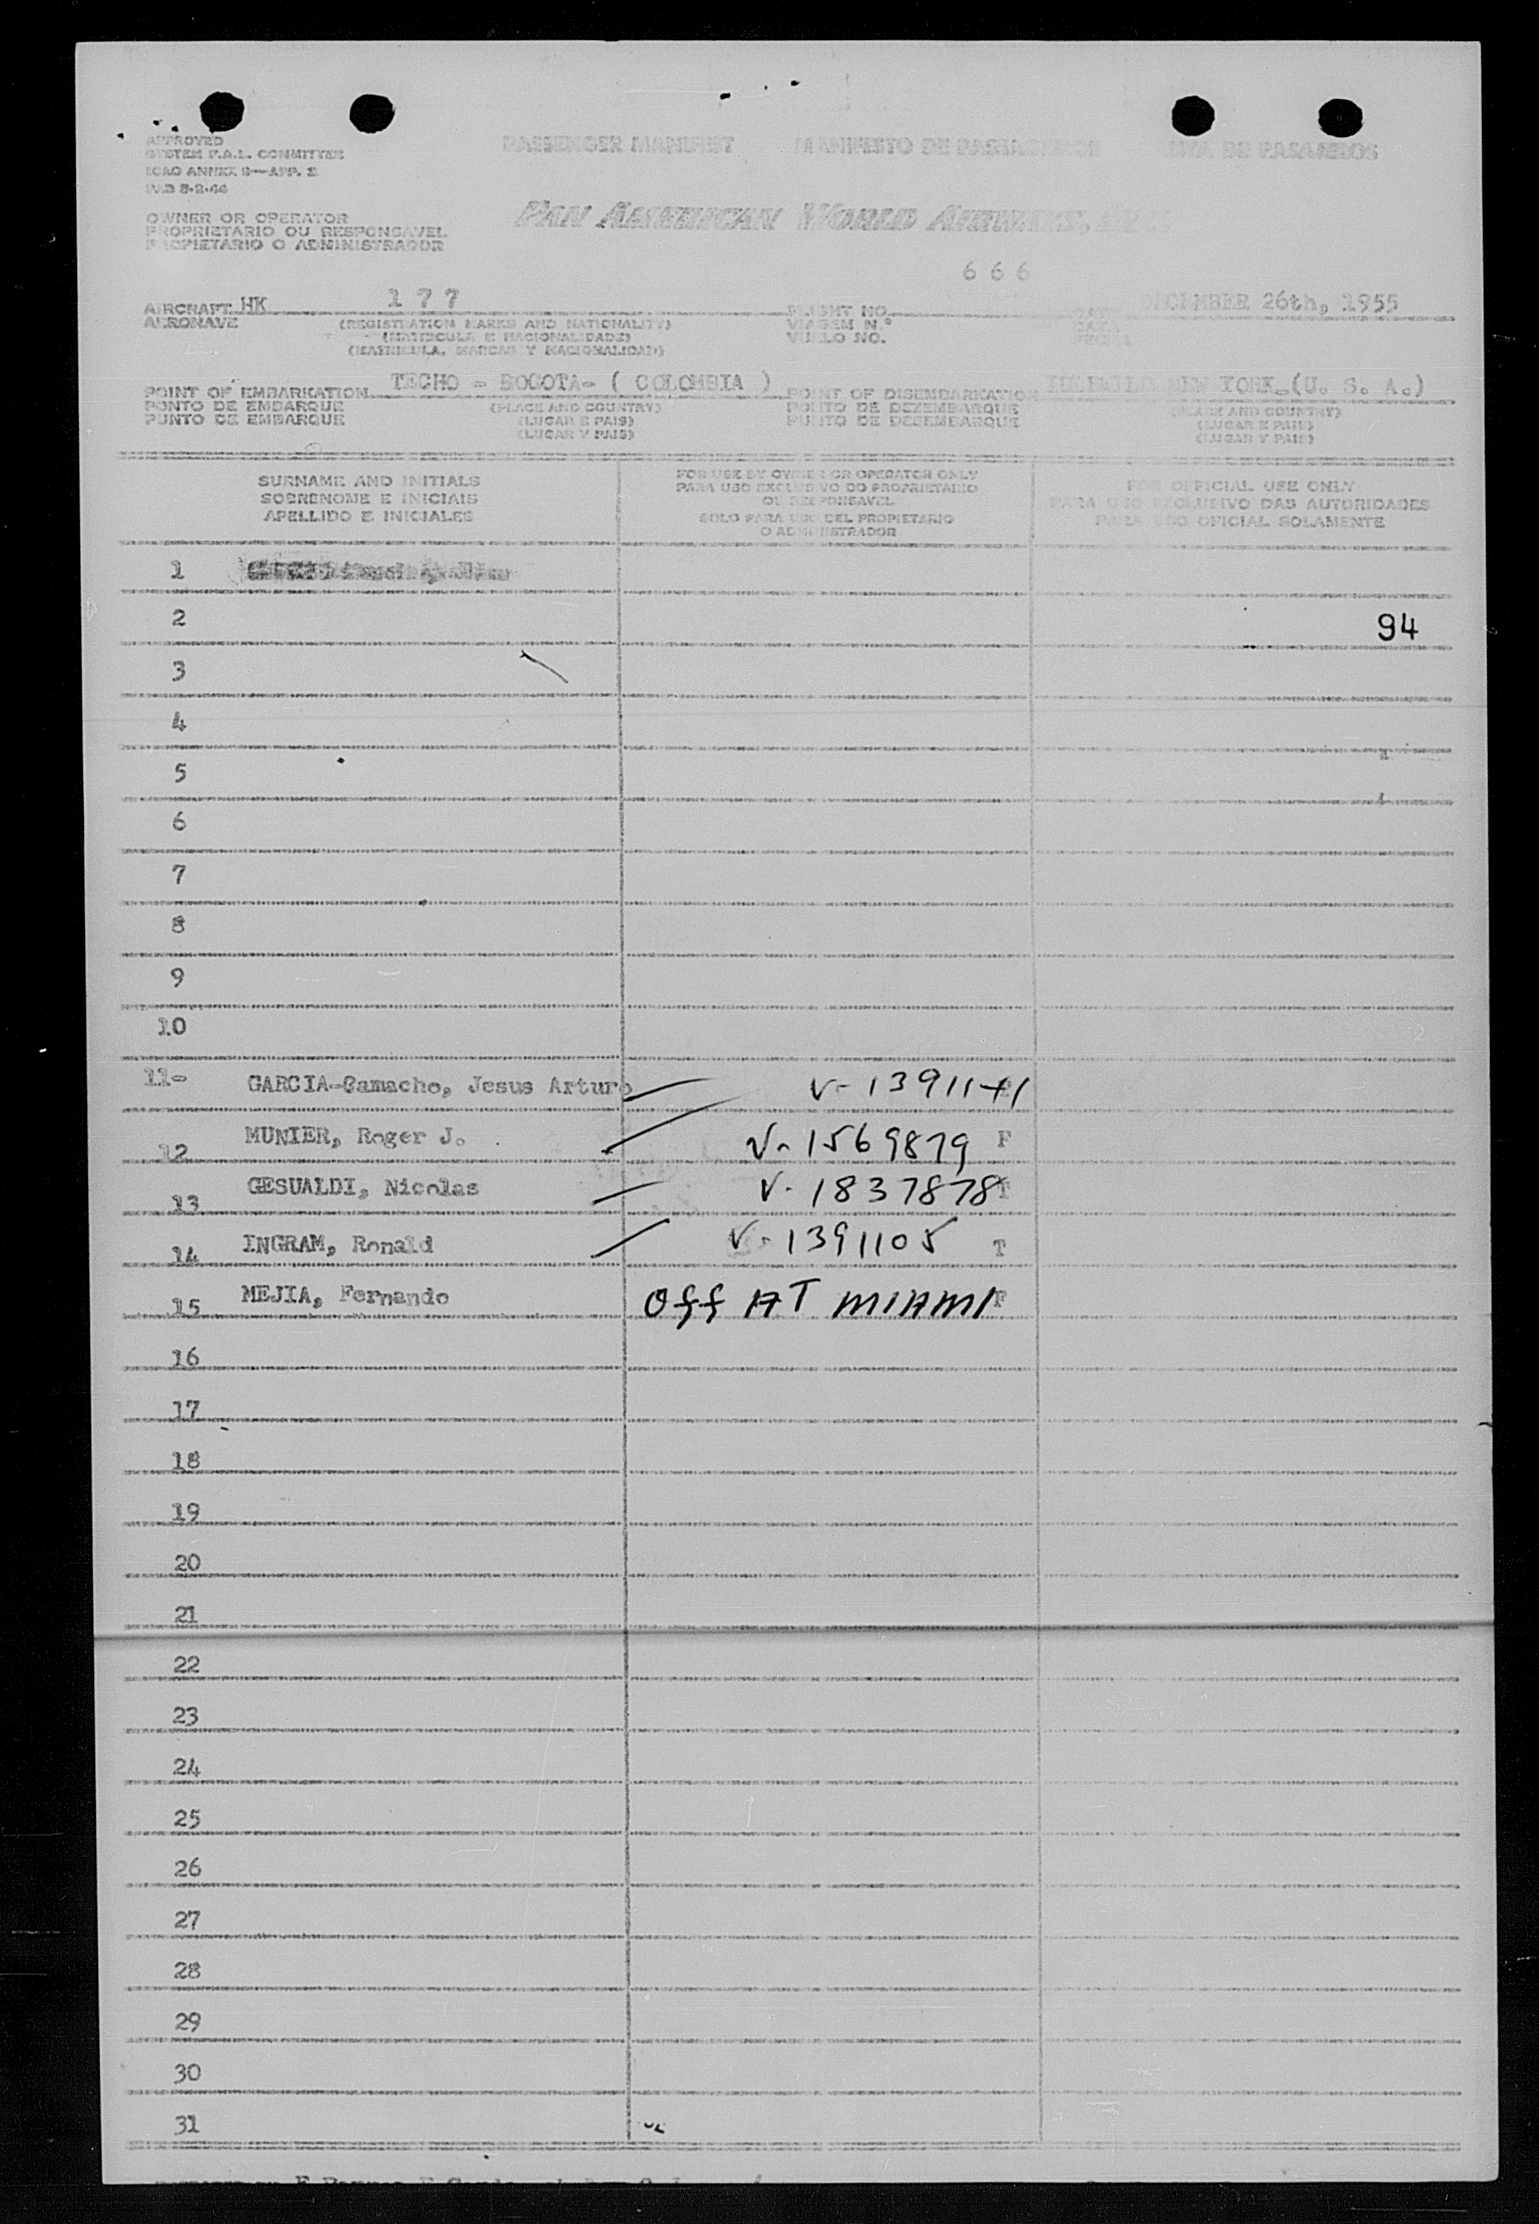 APPROVED
SYSTEM F.A.L. COMMITTEE
ICAO ANNEX 9—APP. 2
PAB 8-2-46
PASSENGER MANIFEST MANIFESTO DE PASSAGEIROS LISTA DE PASAJEROS
OWNER OR OPERATOR
PROPRIETARIO OU RESPONSAVEL
PROPIETARIO O ADMINISTRADOR
PAN AMERICAN WORLD AIRWAYS, INC.
666
AIRCRAFT HK 177 FLIGHT NO. DECEMBER 26th, 1955
AERONAVE (REGISTRATION MARKS AND NATIONALITY) VIAGEM N.º
(MATRICULA E NACIONALIDADE) VUELO NO.
(MATRICULA, MARCAS Y NACIONALIDAD)
POINT OF EMBARKATION TECHO - BOGOTA- ( COLOMBIA ) POINT OF DISEMBARKATION IDLEWILD NEW YORK (U. S. A.)
PONTO DE EMBARQUE (PLACE AND COUNTRY) PONTO DE DEZEMBARQUE (PLACE AND COUNTRY)
PUNTO DE EMBARQUE (LUGAR E PAIS) PUNTO DE DESEMBARQUE (LUGAR E PAIS)
(LUGAR Y PAIS) (LUGAR Y PAIS)
SURNAME AND INITIALS
SOBRENOME E INICIAIS
APELLIDO E INICIALES
FOR USE BY OWNER OR OPERATOR ONLY
PARA USO EXCLUSIVO DO PROPRIETARIO
OU RESPONSAVEL
SOLO PARA USO DEL PROPIETARIO
O ADMINISTRADOR
FOR OFFICIAL USE ONLY
PARA USO EXCLUSIVO DAS AUTORIDADES
PARA USO OFICIAL SOLAMENTE
1
2 94
3
4
5
6
7
8
9
10
11- GARCIA-Camacho, Jesus Arturo V-1391141
12 MUNIER, Roger J. V-1569879 F
13 GESUALDI, Nicolas V-1837878 T
14 INGRAM, Ronald V-1391105 T
15 MEJIA, Fernando Off AT MIAMI F
16
17
18
19
20
21
22
23
24
25
26
27
28
29
30
31